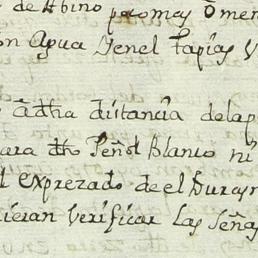 de Albino pa o mas o men
on Agua Venel tapias V
a dha distancia de la p
ara dho Peñol Blanco ni
l exprezado de el Durasn
icieran Verificar las Señas